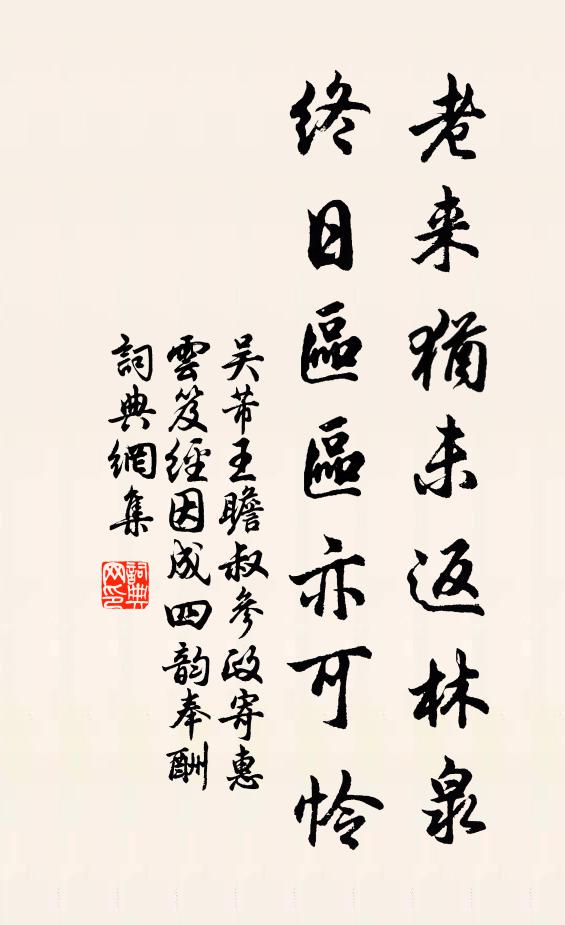 老来猶未返林泉
終日區區亦可怜
吴芾王瞻叔參政寄惠
雲笈經因成四韵奉酬
詞典網集
詞典
网印